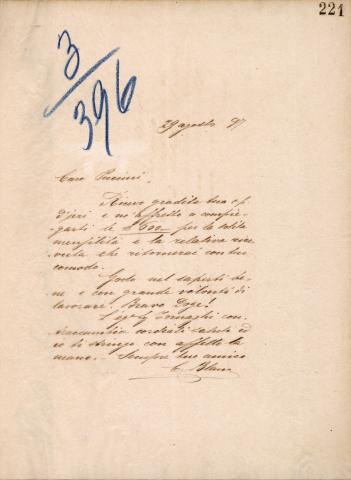 221
3/396
29 agosto 97
Caro Puccini,
Ricevo gradita tua c.p.
d'jeri e mi affretto a compie-
garti le £ 500 per la solita
mensilità e la relativa rice-
vuta che ritornerai con tuo
comodo.
Godo nel saperti be-
ne e con grande volontà di
lavorare! Bravo Doge!
Tornaghi con-
traccambia cordiali saluti ed
io ti stringo con affetto la
mano. - Sempre tuo amico
C. Blanc